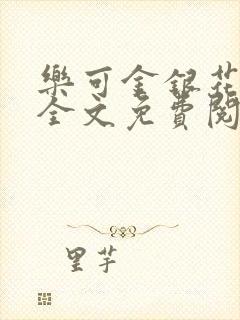 樂可金銀花
全文免費閱
里芋